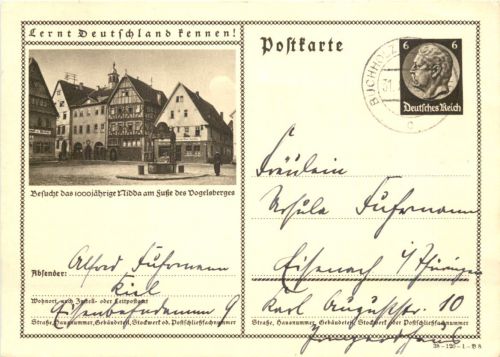 Lernt Deutschland kennen!
Besucht das 1000jährige Nidda am Fuße des Vogelsberges
Absender: Alfred Fuhrmann
Kiel
Wohnort, auch Zustell- oder Leitpostamt
9
Straße, Hausnummer, Gebäudeteil, Stockwerk od. Postschließfachnummer
Postkarte
BUCHHOLZ
31.
c
6 6
Deutsches Reich
Fräulein
Ursula Fuhrmann
Eisenach i/Thüringen
Karl Auguststr. 10
Straße, Hausnummer, Gebäudeteil, Stockwerk oder Postschließfachnummer